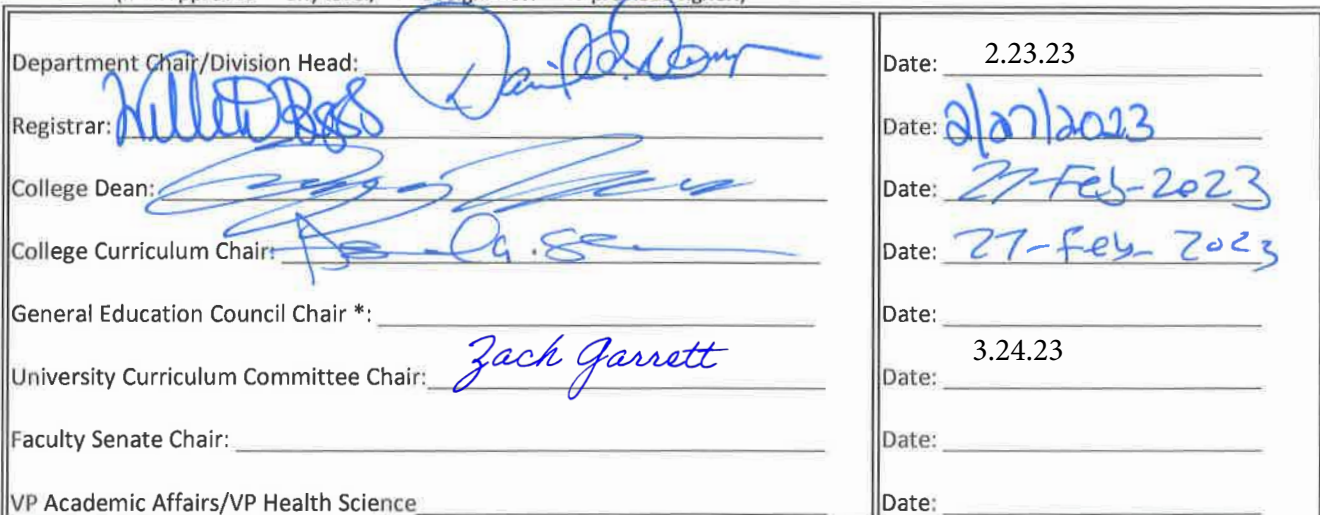 Department Chair/Division Head: Date: 2.23.23
Registrar: Date: 2/27/2023
College Dean: Date: 27-Feb-2023
College Curriculum Chair: Date: 27-Feb-2023
General Education Council Chair *: Date:
University Curriculum Committee Chair: Zach Garrett Date: 3.24.23
Faculty Senate Chair: Date:
VP Academic Affairs/VP Health Science Date: